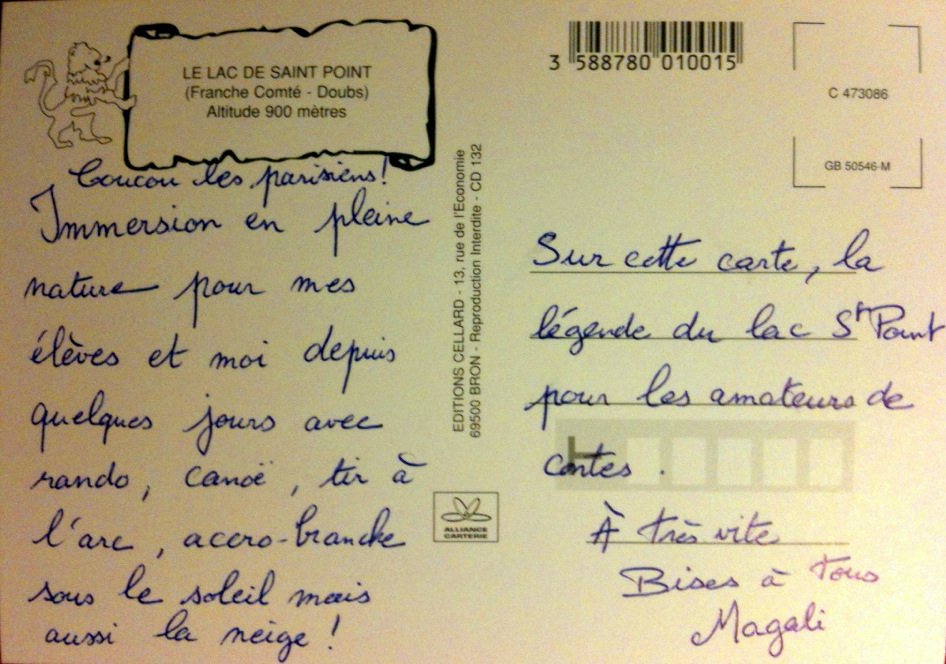 LE LAC DE SAINT POINT
(Franche Comté - Doubs)
Altitude 900 mètres
Coucou les parisiens!
Immersion en pleine
nature pour mes
élèves et moi depuis
quelques jours avec
rando, canoë, tir à
l'arc, accro-branche
sous le soleil mais
aussi la neige !
EDITIONS CELLARD - 13, rue de l'Economie
69500 BRON - Reproduction Interdite - CD 132
ALLIANCE
CARTERIE
3 588780 010015
C 473086
GB 50546-M
Sur cette carte, la
légende du lac St Point
pour les amateurs de
contes.
À très vite
Bises à tous
Magali